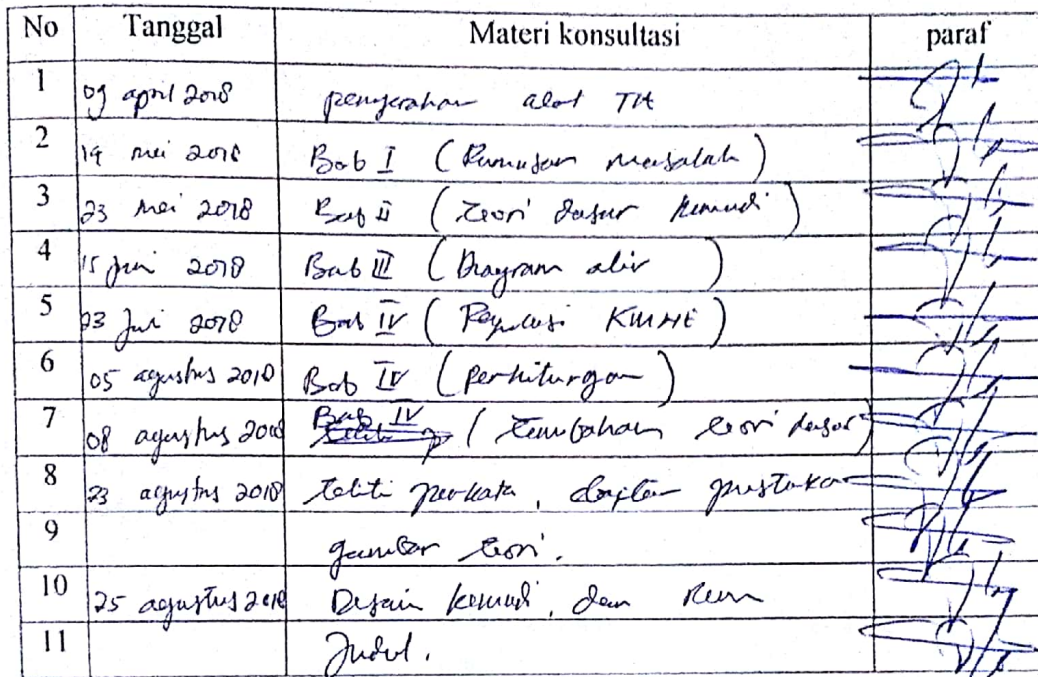 No Tanggal Materi konsultasi paraf
1 09 april 2018 penyerahan alat TA
2 14 mei 2018 Bab I (Rumusan masalah)
3 23 mei 2018 Bab II (Teori dasar kemudi)
4 15 juni 2018 Bab III (Diagram alir)
5 23 Juli 2018 Bab IV ( KMHE)
6 05 agustus 2018 Bab IV (perhitungan)
7 08 agustus 2018 Bab IV ( teori dasar)
8 23 agustus 2018 teliti perkata, daftar pustaka
9 gambar teori.
10 25 agustus 2018 Desain kemudi, dan Rem
11 Judul.